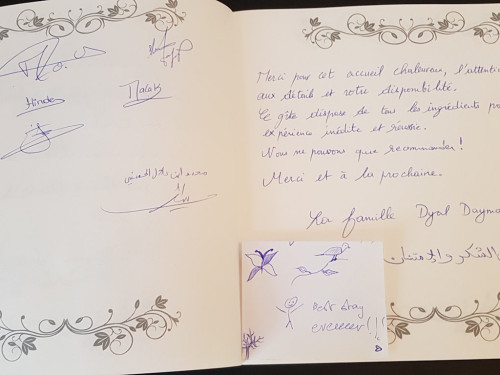 Hindo
Malak
Merci pour cet accueil chaleureux, l'attention
aux détails et votre disponibilité.
Ce gîte dispose de tous les ingrédients po
expérience inédite et réussie.
Nous ne pouvons que recommander!
Merci et à la prochaine.
famille Djal Daymo
الشكر والإمتنان
Best stay
eveeeeer!!!